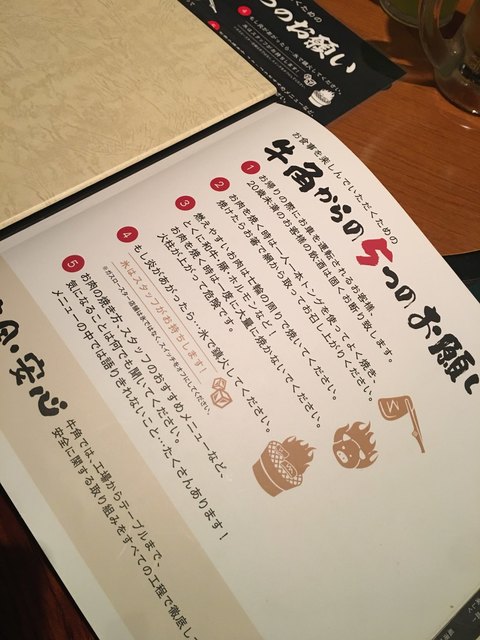 お食事を楽しんでいただくための
牛角からの5つのお願い
1 お帰りの際にお車を運転されるお客様、
20歳未満のお客様の飲酒は固くお断り致します。
2 お肉を焼く時は、一人一本トングを使ってよく焼き、
焼けたらお箸で網から取ってお召し上がりください。
3 燃えやすいお肉は七輪の周りで焼いてください。
とくに和牛・豚・ホルモン・など。
お肉を焼く時は一度に大量に焼かないでください。
火柱が上がって危険です。
4 もし炎があがったら…氷で鎮火してください。
氷はスタッフがお持ちします!
5 お肉の焼き方、スタッフのおすすめメニューなど、
気になることは何でも聞いてください。
メニューの中では語りきれないこと…たくさんあります!
安心
牛角では、工場からテーブルまで、
安全に関する取り組みをすべての工程で徹底し
つのお願い